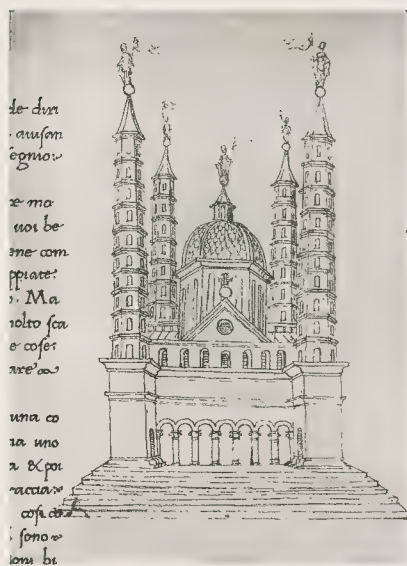 de divi
auisam
segnio
re mo
uoi be
ene com
ppiate
o. Ma
molto sca
e cose
are
una co
ia uno
a & poi
raccia
cosi
sono
ioni bi